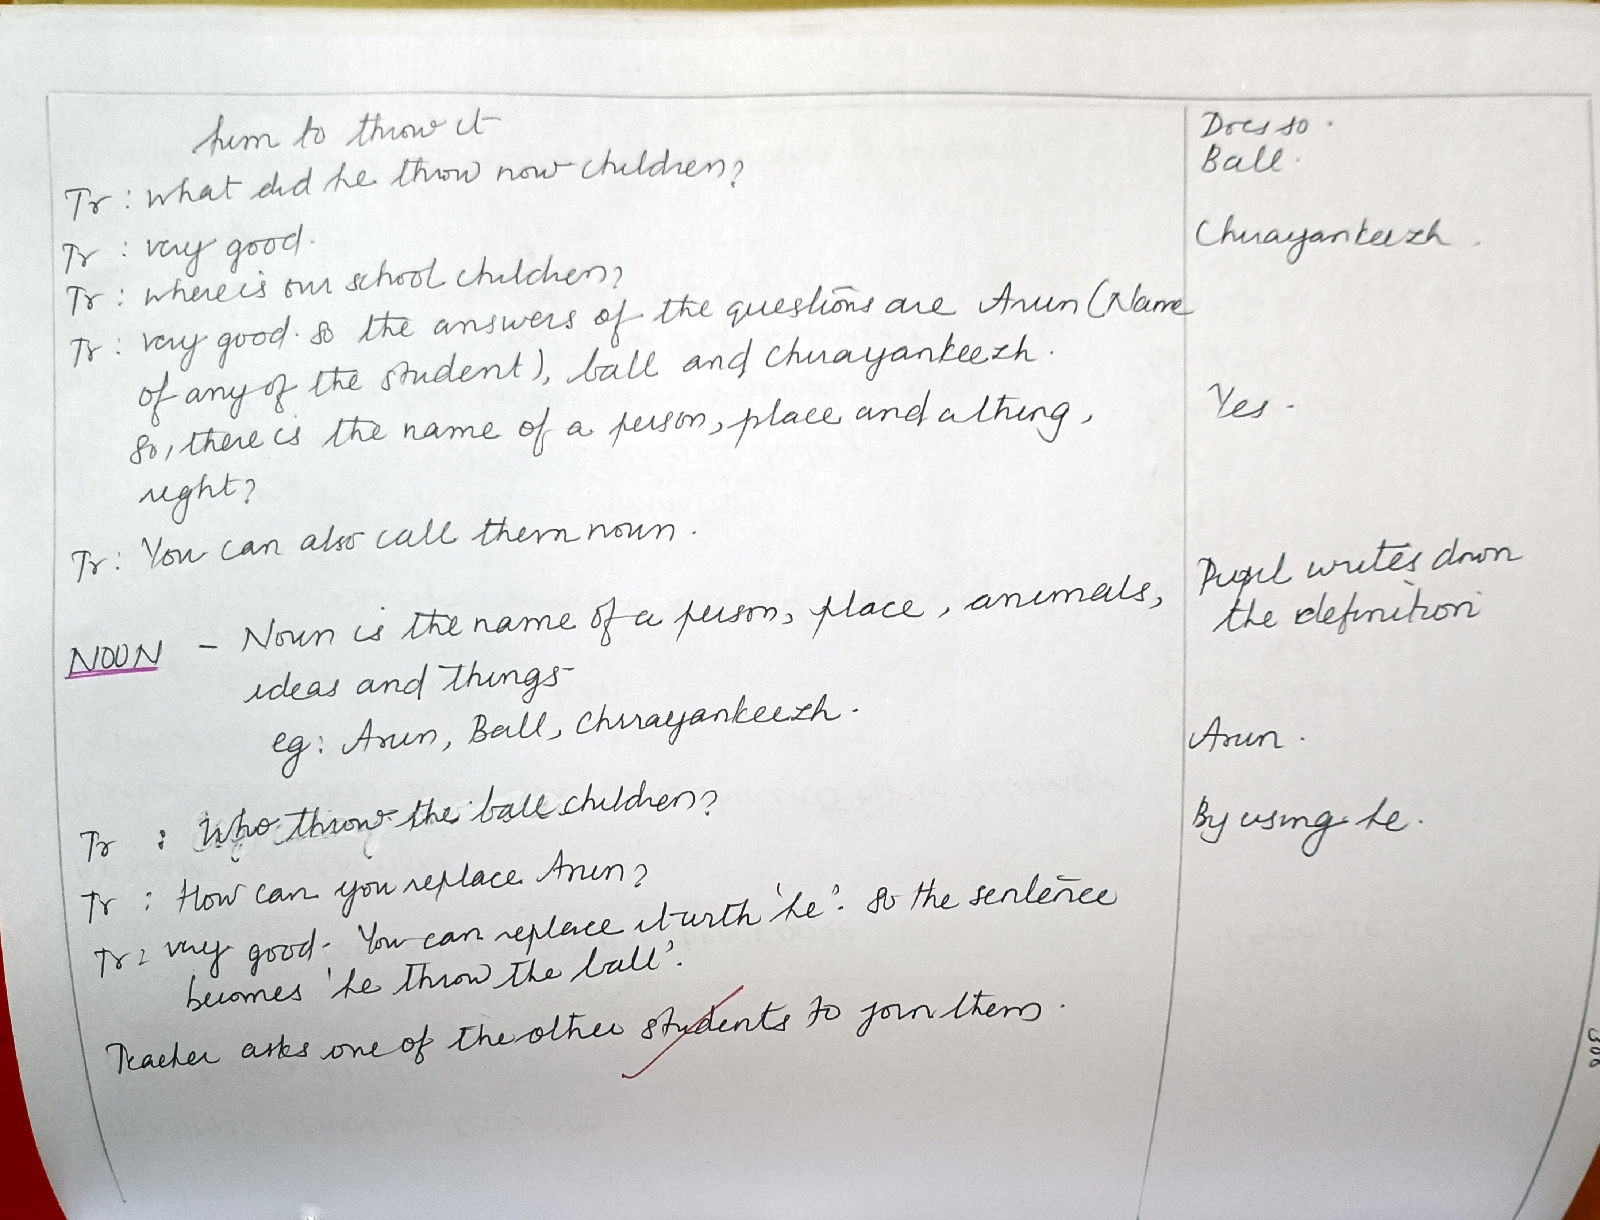 him to throw it
Tr: what did he throw now children?
Tr: very good.
Tr: where is our school children?
Tr: very good. So the answers of the questions are Arun (Name
of any of the student), ball and Chirayankeezh.
So, there is the name of a person, place and a thing,
right?
Tr: You can also call them noun.
NOUN - Noun is the name of a person, place, animals,
ideas and things
eg: Arun, Ball, Chirayankeezh.
Tr : Who throw the ball children?
Tr : How can you replace Arun?
Tr: very good. You can replace it with 'he'. So the sentence
becomes 'he throw the ball'.
Teacher asks one of the other students to join them.
Does so.
Ball.
Chirayankeezh.
Yes.
Pupil writes down
the definition
Arun.
By using he.